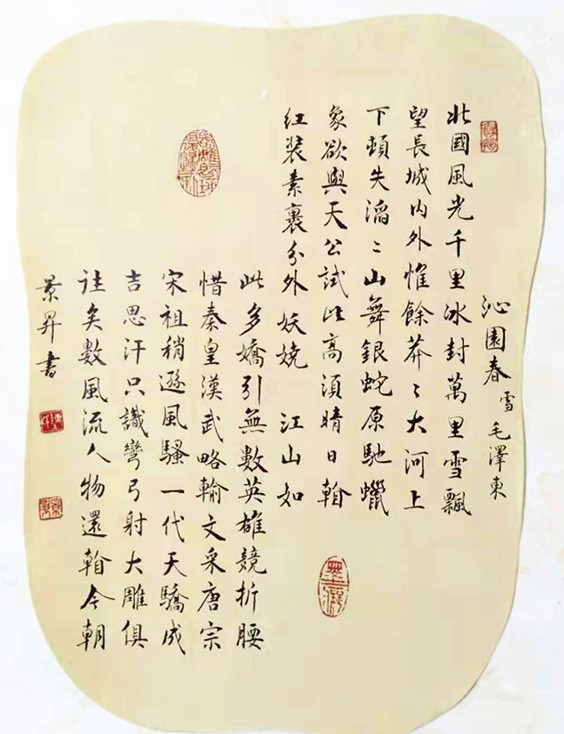 沁園春 雪 毛澤東
北國風光千里冰封萬里雪飄
望長城內外惟餘莽〻大河上
下頓失滔〻山舞銀蛇原馳蠟
象欲與天公試比高須晴日看
紅裝素裹分外妖嬈 江山如
此多嬌引無數英雄競折腰
惜秦皇漢武略輸文采唐宗
宋祖稍遜風騷一代天驕成
吉思汗只識彎弓射大雕俱
往矣數風流人物還看今朝
景昇書